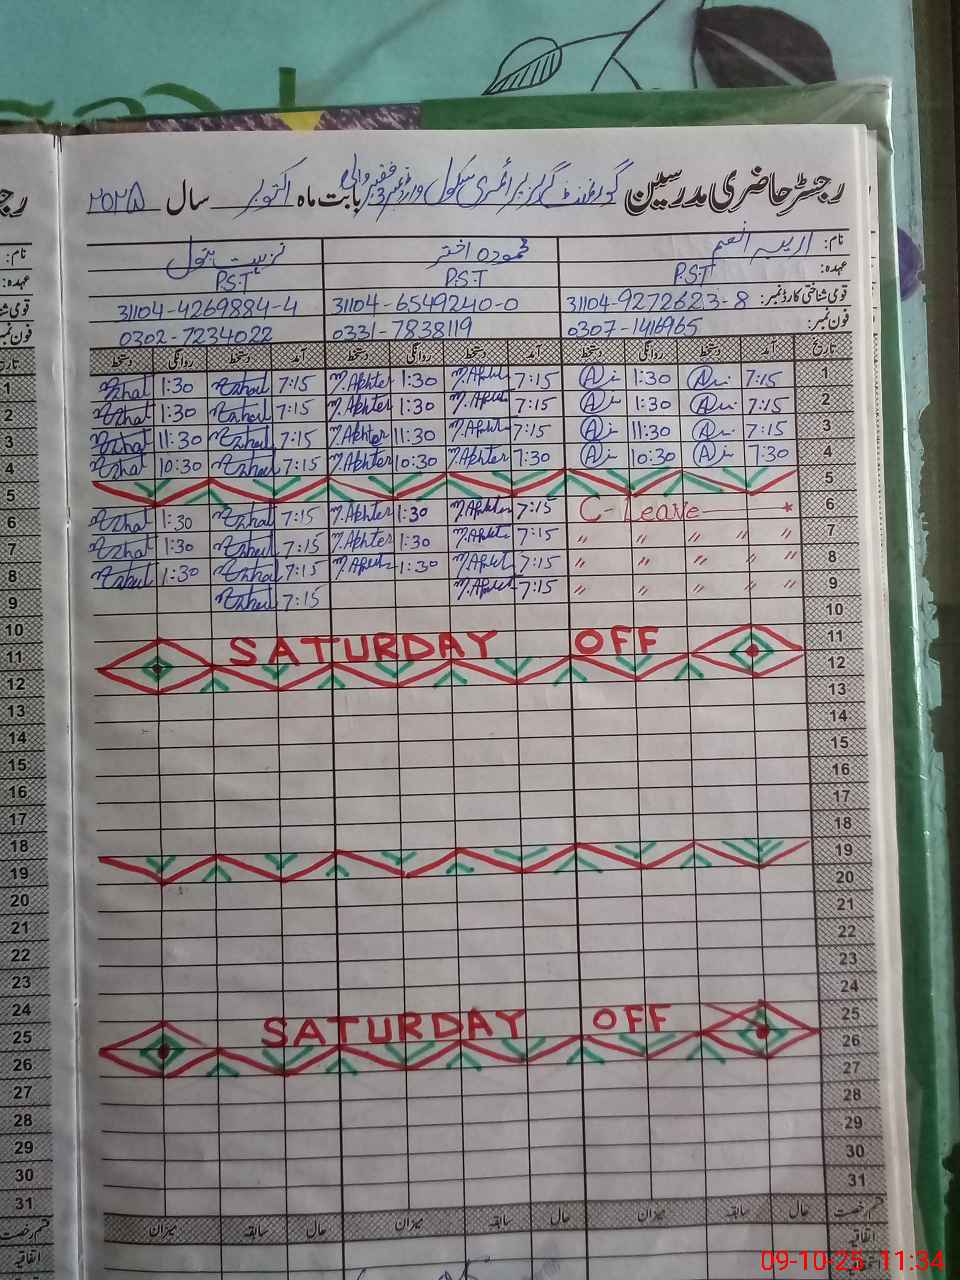 رجسٹر حاضری مدرسین گورنمنٹ گرلز پرائمری سکول وارڈ نمبر 3 فقیر والی بابت ماہ اکتوبر سال ۲۰۲۵
نام: اریبہ انعم محمودہ اختر نزہت بتول
عہدہ: P.S.T P.S.T P.S.T
قومی شناختی کارڈ نمبر: 31104-9272623-8 31104-6549240-0 31104-4269884-4
فون نمبر: 0307-1416965 0331-7838119 0302-7234022
تاریخ آمد دستخط روانگی دستخط آمد دستخط روانگی دستخط آمد دستخط روانگی دستخط
1 7:15 1:30 7:15 M.Akhter 1:30 M.Akhter 7:15 Azhat 1:30 Azhat
2 7:15 1:30 7:15 M.Akhter 1:30 M.Akhter 7:15 Azhat 1:30 Azhat
3 7:15 11:30 7:15 M.Akhter 11:30 M.Akhter 7:15 Azhat 11:30 Azhat
4 7:30 10:30 7:30 M.Akhter 10:30 M.Akhter 7:15 Azhat 10:30 Azhat
5
6 C-Leave 7:15 M.Akhter 1:30 M.Akhter 7:15 Azhat 1:30 Azhat
7 〃 〃 〃 〃 〃 7:15 M.Akhter 1:30 M.Akhter 7:15 Azhat 1:30 Azhat
8 〃 〃 〃 〃 〃 7:15 M.Akhter 1:30 M.Akhter 7:15 Azhat 1:30 Azhat
9 〃 〃 〃 〃 〃 7:15 M.Akhter 7:15 Azhat
10
11 SATURDAY OFF
12
13
14
15
16
17
18
19
20
21
22
23
24
25 SATURDAY OFF
26
27
28
29
30
31
قسم رخصت حال سابقہ میزان حال سابقہ میزان حال سابقہ میزان
اتفاقیہ
09-10-25 11:34